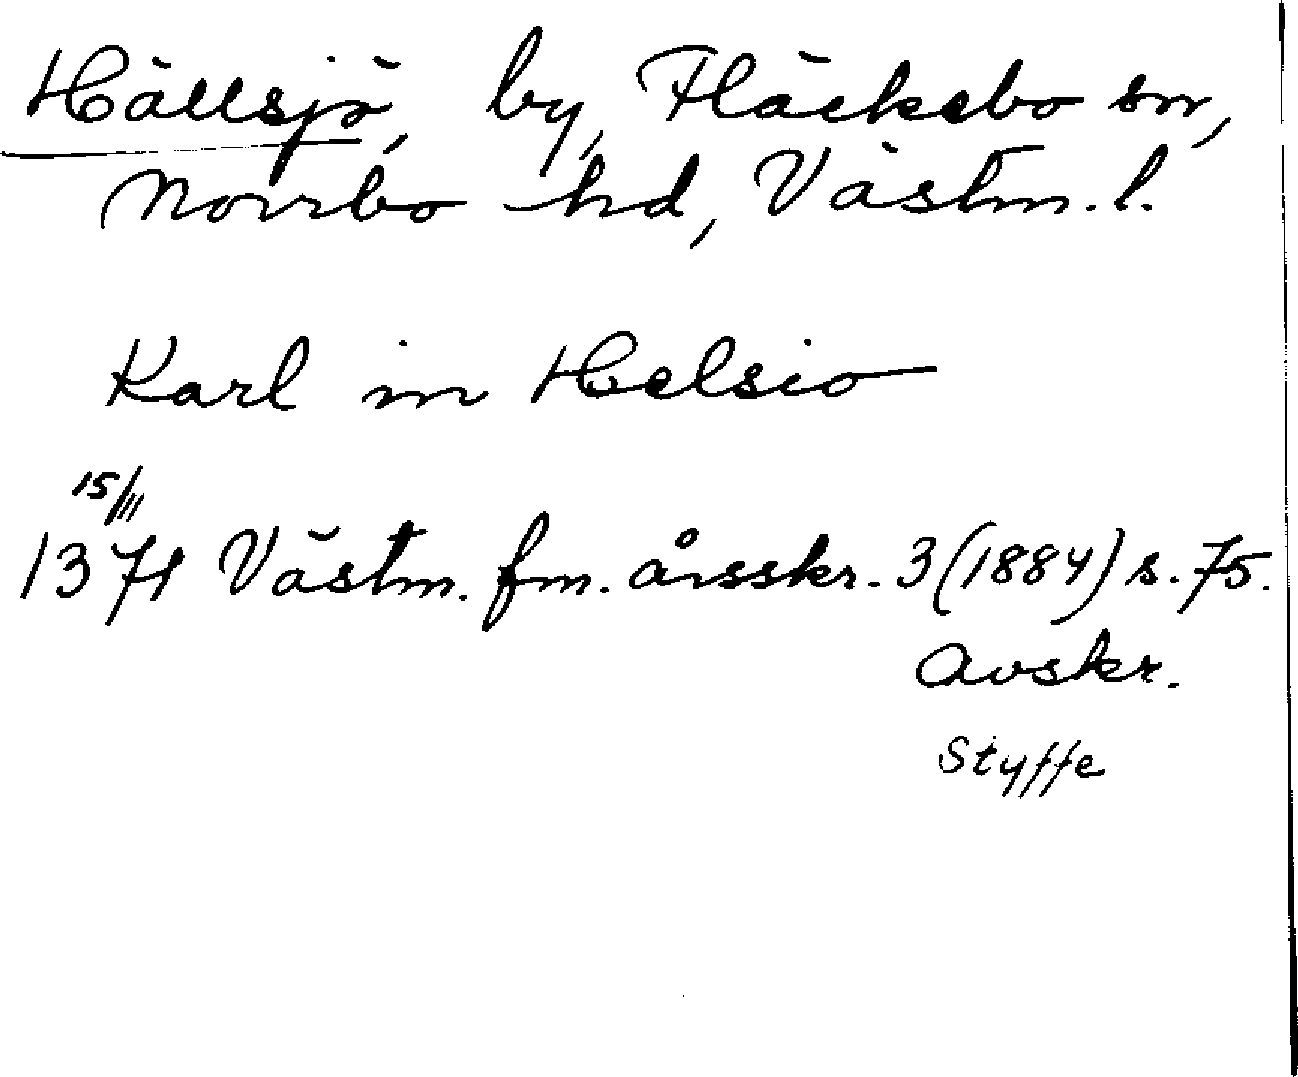 Hällsjö, by, Fläckebo sn,
Norrbo hd, Västm. l.
Karl in Helsio
15/III
1371 Västm. fm. årsskr. 3 (1884) s. 75.
Avskr.
Styffe